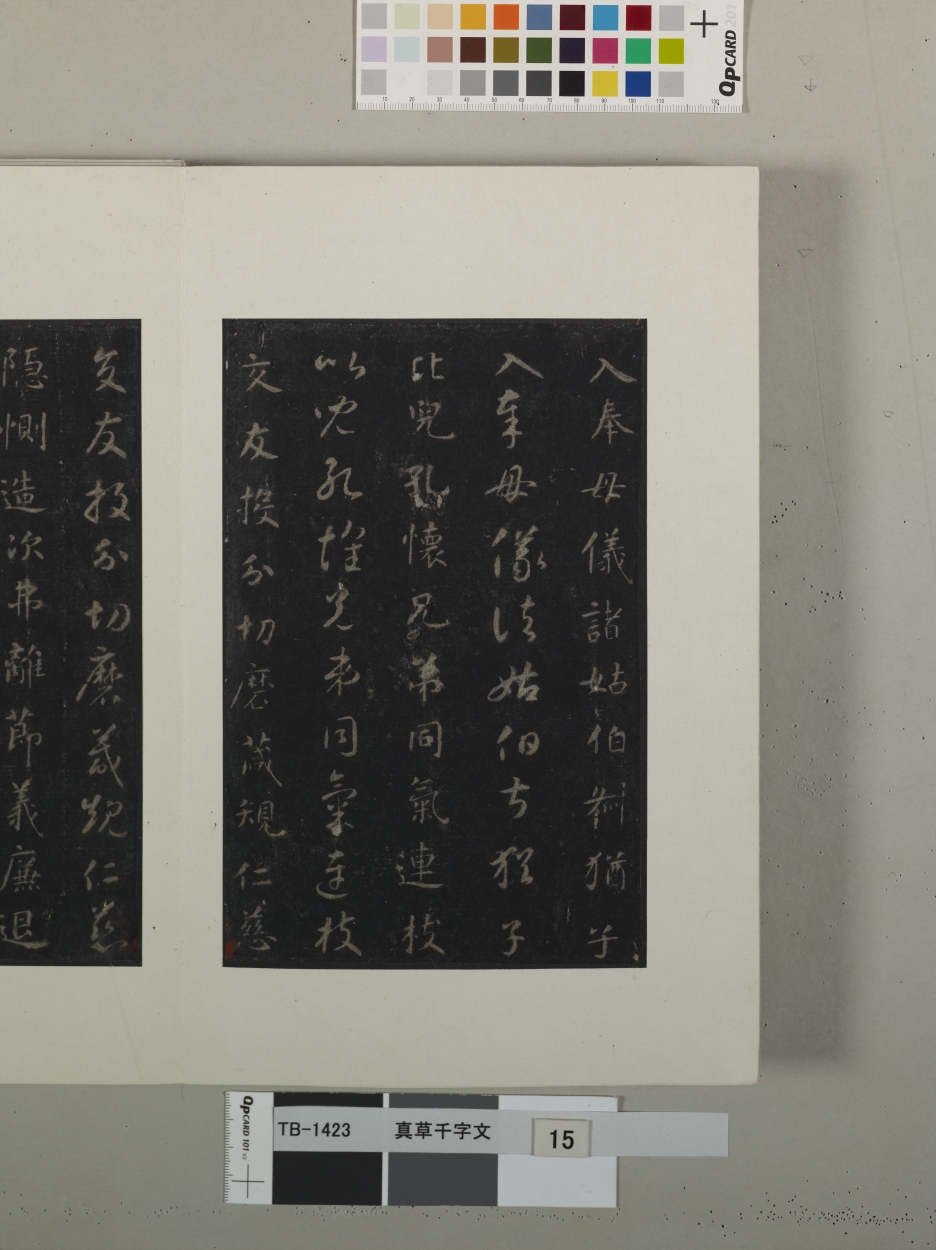 入奉母儀諸姑伯叔猶子
入奉母儀諸姑伯叔猶子
比兒孔懷兄弟同氣連枝
比兒孔懷兄弟同氣連枝
交友投分切磨箴規仁慈
交友投分切磨箴規仁慈
隱惻造次弗離節義廉退
QpCARD 201
10 20 30 40 50 60 70 80 90 100 110 130
QpCARD 101 v2
TB-1423 真草千字文 15